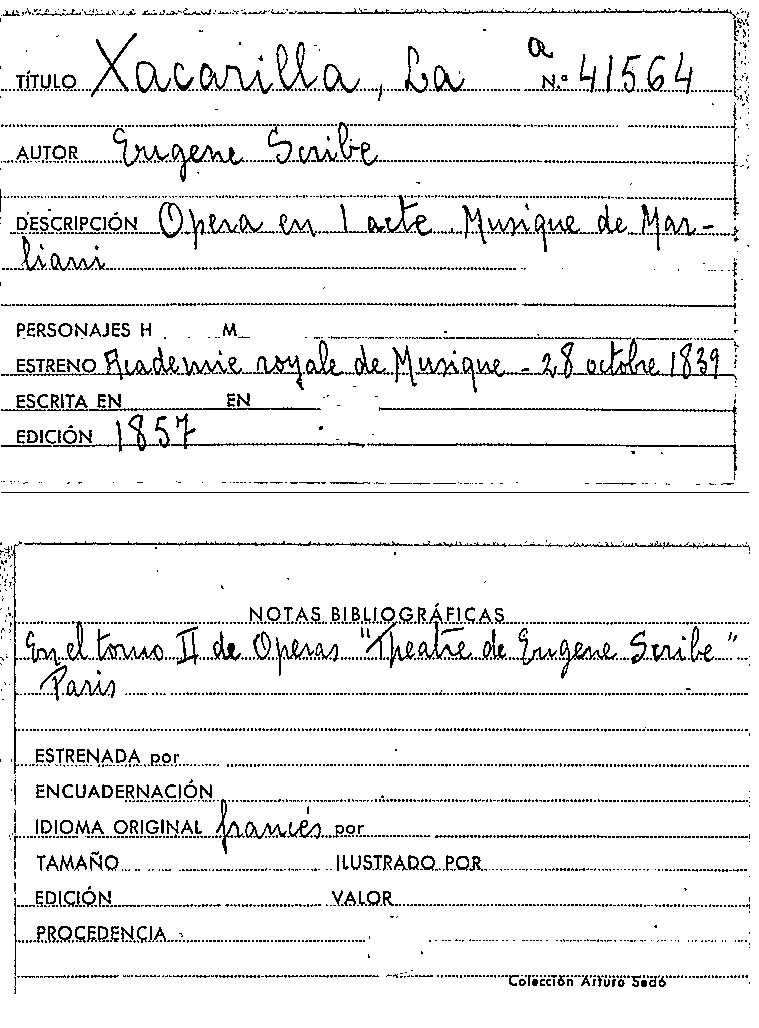 TÍTULO Xacarilla, La a N.º 41564
AUTOR Eugene Scribe
DESCRIPCIÓN Opera en 1 acte. Musique de Mar-
liani
PERSONAJES H M
ESTRENO Academie royale de Musique - 28 octobre 1839
ESCRITA EN EN
EDICIÓN 1857
NOTAS BIBLIOGRÁFICAS
En el tomo II de Operas "Theatre de Eugene Scribe"
Paris
ESTRENADA por
ENCUADERNACIÓN
IDIOMA ORIGINAL francés por
TAMAÑO ILUSTRADO POR
EDICIÓN VALOR
PROCEDENCIA
Colección Arturo Sedó